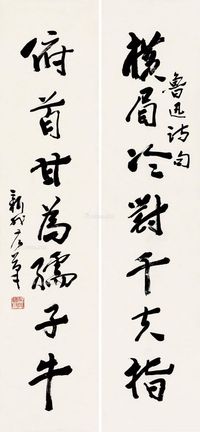 横眉冷對千夫指
魯迅詩句
俯首甘為孺子牛